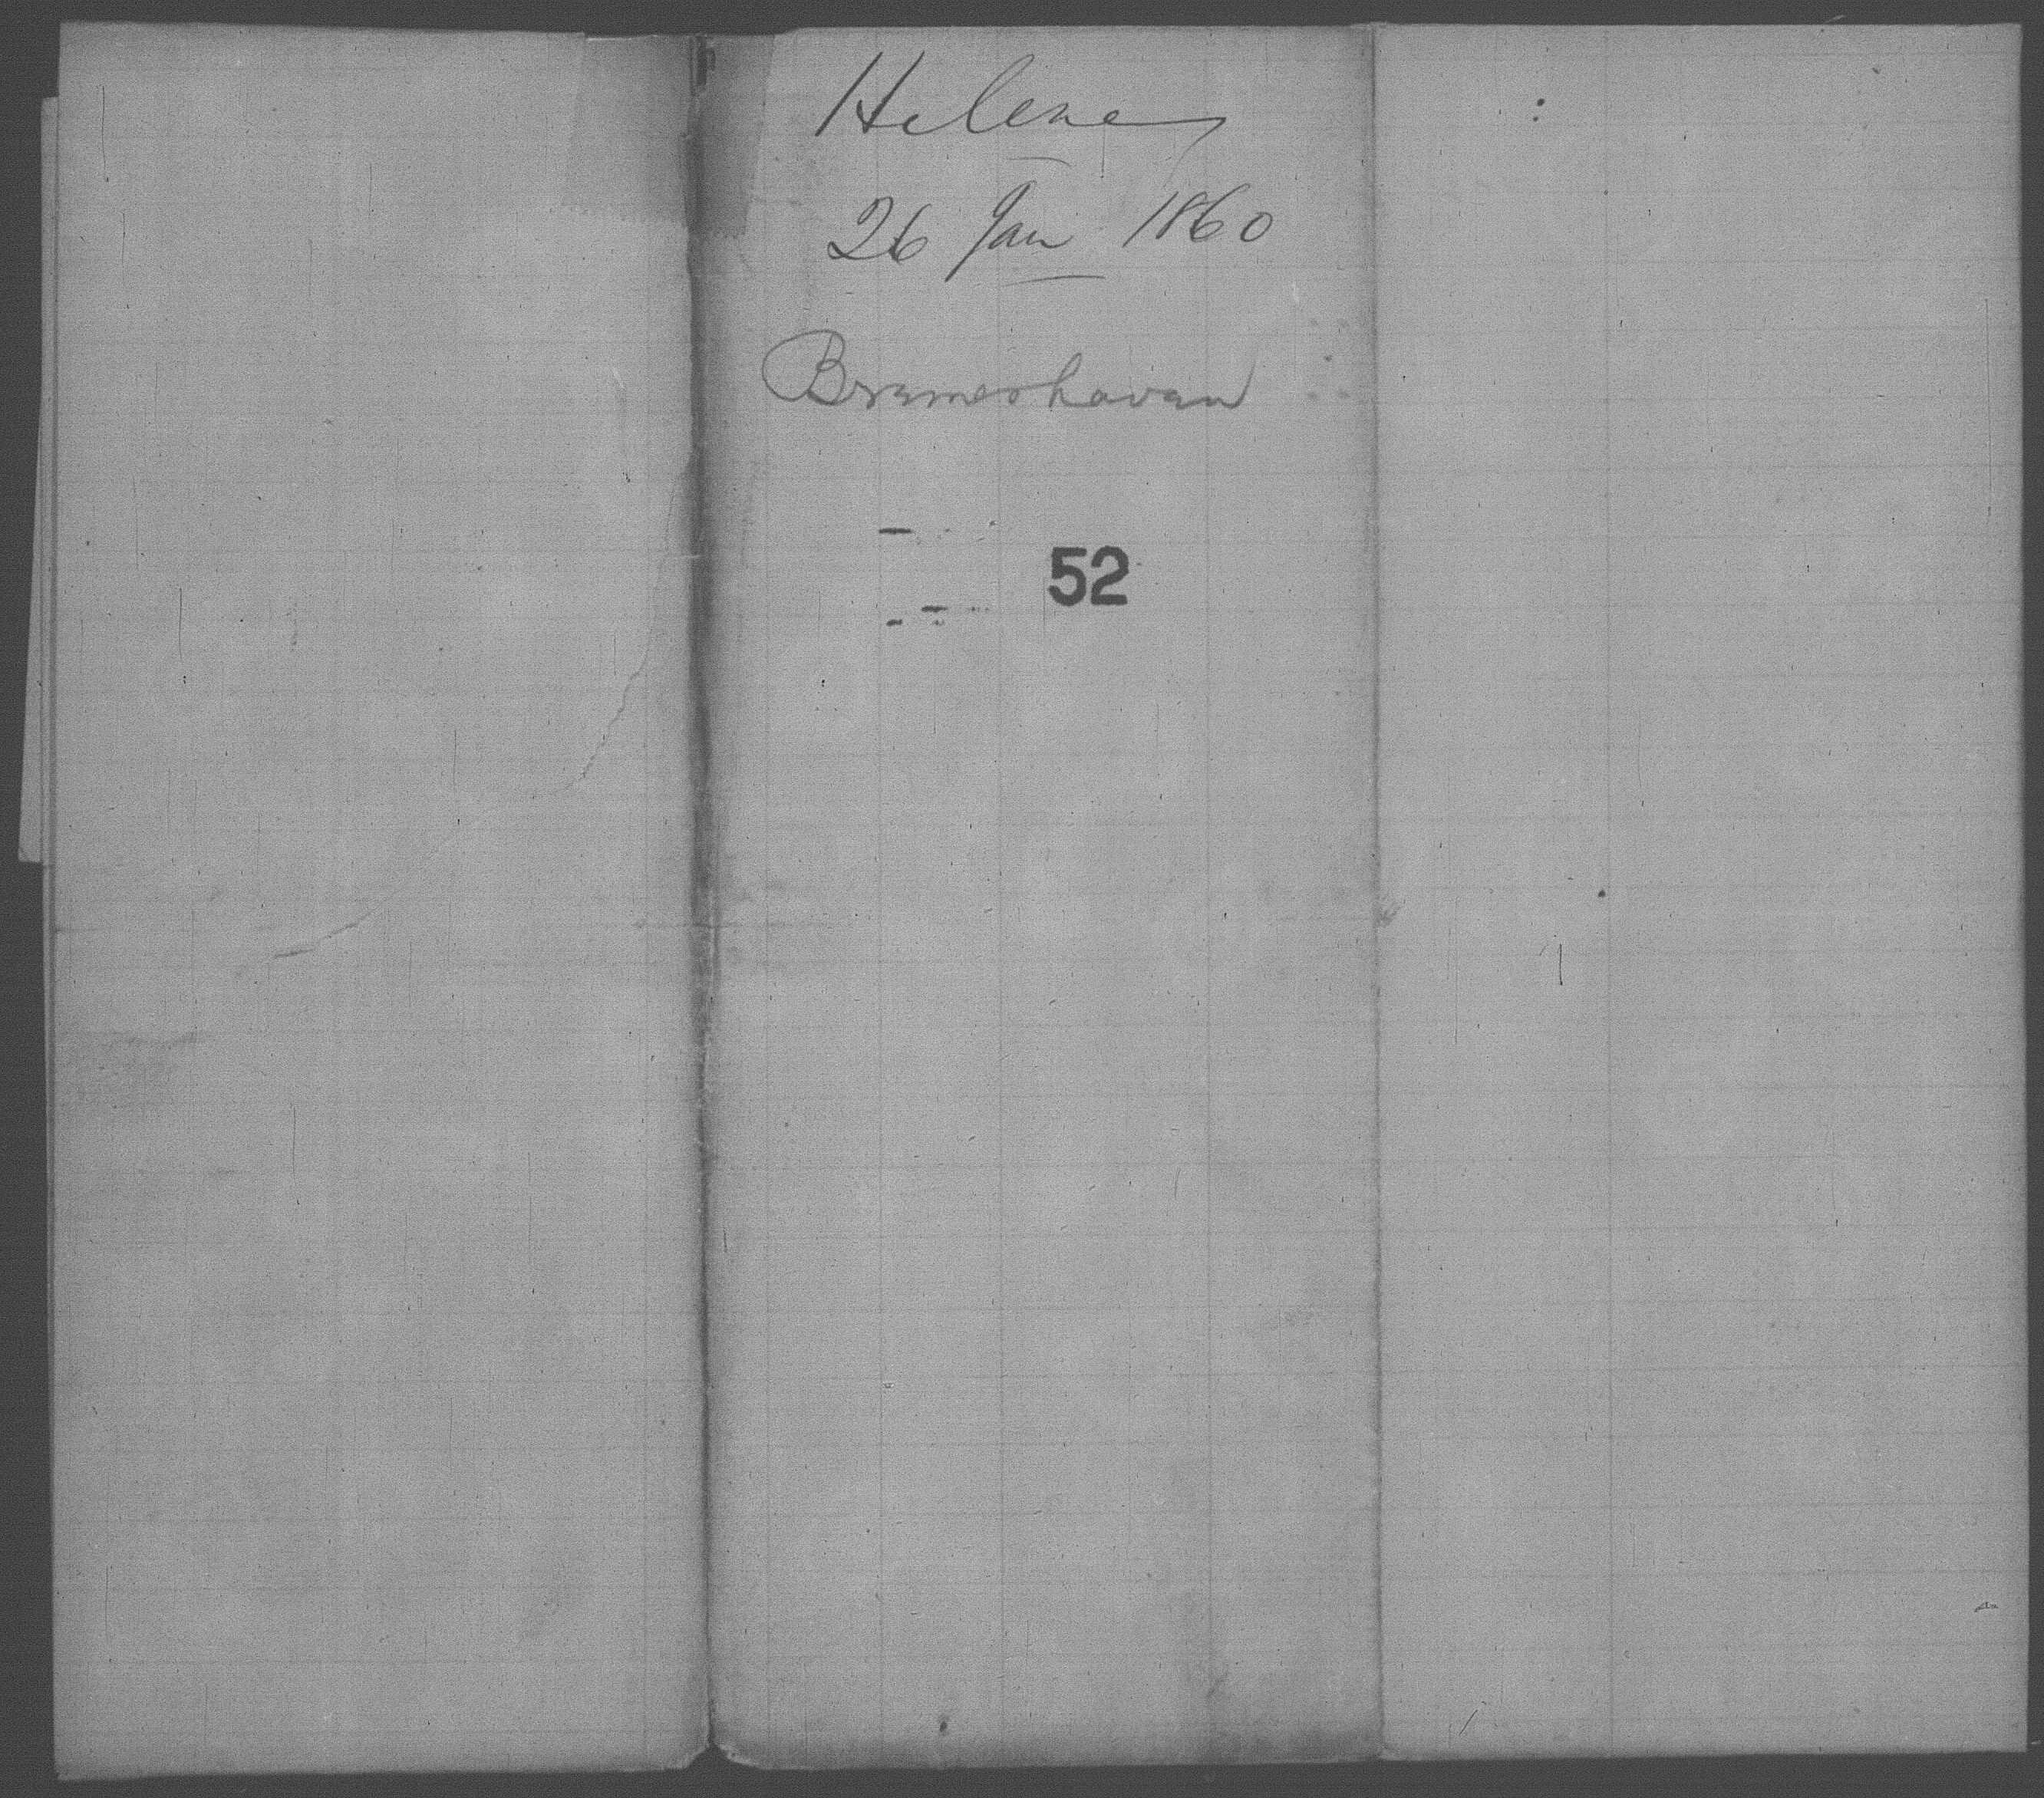 Helene
26 Jan 1860
Bremerhaven
52